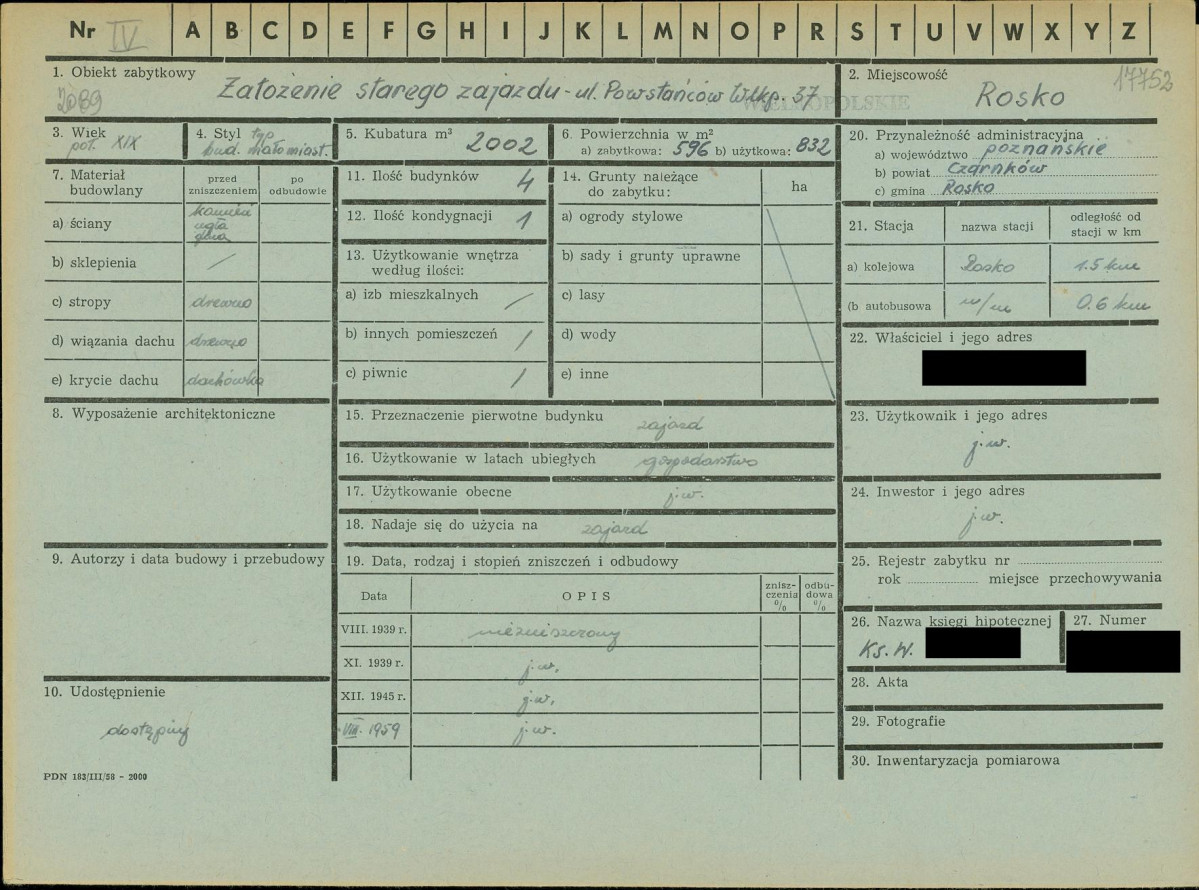 Nr IV A B C D E F G H I J K L M N O P R S T U V W X Y Z
1. Obiekt zabytkowy
Założenie starego zajazdu - ul. Powstańców Wlkp. 37
2. Miejscowość
17752
Rosko
3. Wiek
poł. XIX
4. Styl typ
bud. małomiast.
5. Kubatura m³
2002
6. Powierzchnia w m²
a) zabytkowa: 596 b) użytkowa: 832
7. Materiał budowlany
przed zniszczeniem
po odbudowie
a) ściany
kamień
cegła
glina
b) sklepienia /
c) stropy drewno
d) wiązania dachu drewno
e) krycie dachu dachówka
8. Wyposażenie architektoniczne
9. Autorzy i data budowy i przebudowy
10. Udostępnienie
dostępny
PDN 183/III/58 - 2000
11. Ilość budynków 4
12. Ilość kondygnacji 1
13. Użytkowanie wnętrza
według ilości:
a) izb mieszkalnych /
b) innych pomieszczeń /
c) piwnic /
14. Grunty należące
do zabytku:
ha
a) ogrody stylowe
b) sady i grunty uprawne
c) lasy
d) wody
e) inne
15. Przeznaczenie pierwotne budynku zajazd
16. Użytkowanie w latach ubiegłych gospodarstwo
17. Użytkowanie obecne j.w.
18. Nadaje się do użycia na zajazd
19. Data, rodzaj i stopień zniszczeń i odbudowy
Data
OPIS
znisz-
czenia
%
odbu-
dowa
%
VIII. 1939 r. niezniszczony
XI. 1939 r. j.w.
XII. 1945 r. j.w.
VIII. 1959 j.w.
20. Przynależność administracyjna
a) województwo poznańskie
b) powiat Czarnków
c) gmina Rosko
21. Stacja
nazwa stacji
odległość od
stacji w km
a) kolejowa Rosko 1.5 km
(b autobusowa w/m 0.6 km
22. Właściciel i jego adres
23. Użytkownik i jego adres
j.w.
24. Inwestor i jego adres
j.w.
25. Rejestr zabytku nr
rok miejsce przechowywania
26. Nazwa księgi hipotecznej
Ks. W.
27. Numer
28. Akta
29. Fotografie
30. Inwentaryzacja pomiarowa